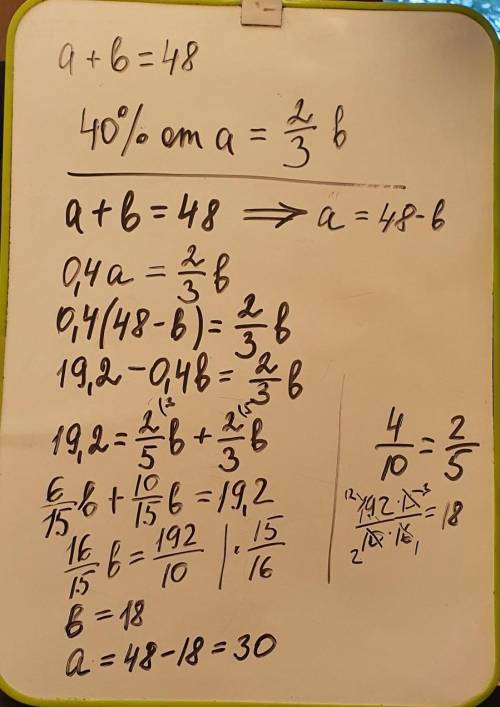 a + b = 48
40% от a = 2/3 b
a + b = 48 ⟹ a = 48 - b
0,4a = 2/3 b
0,4(48 - b) = 2/3 b
19,2 - 0,4b = 2/3 b
19,2 = 2/5 (3 b + 2/3 (5 b
6/15 b + 10/15 b = 19,2
16/15 b = 192/10 | · 15/16
b = 18
a = 48 - 18 = 30
4/10 = 2/5
12 192 · 15 3 / 2 10 · 16 1 = 18